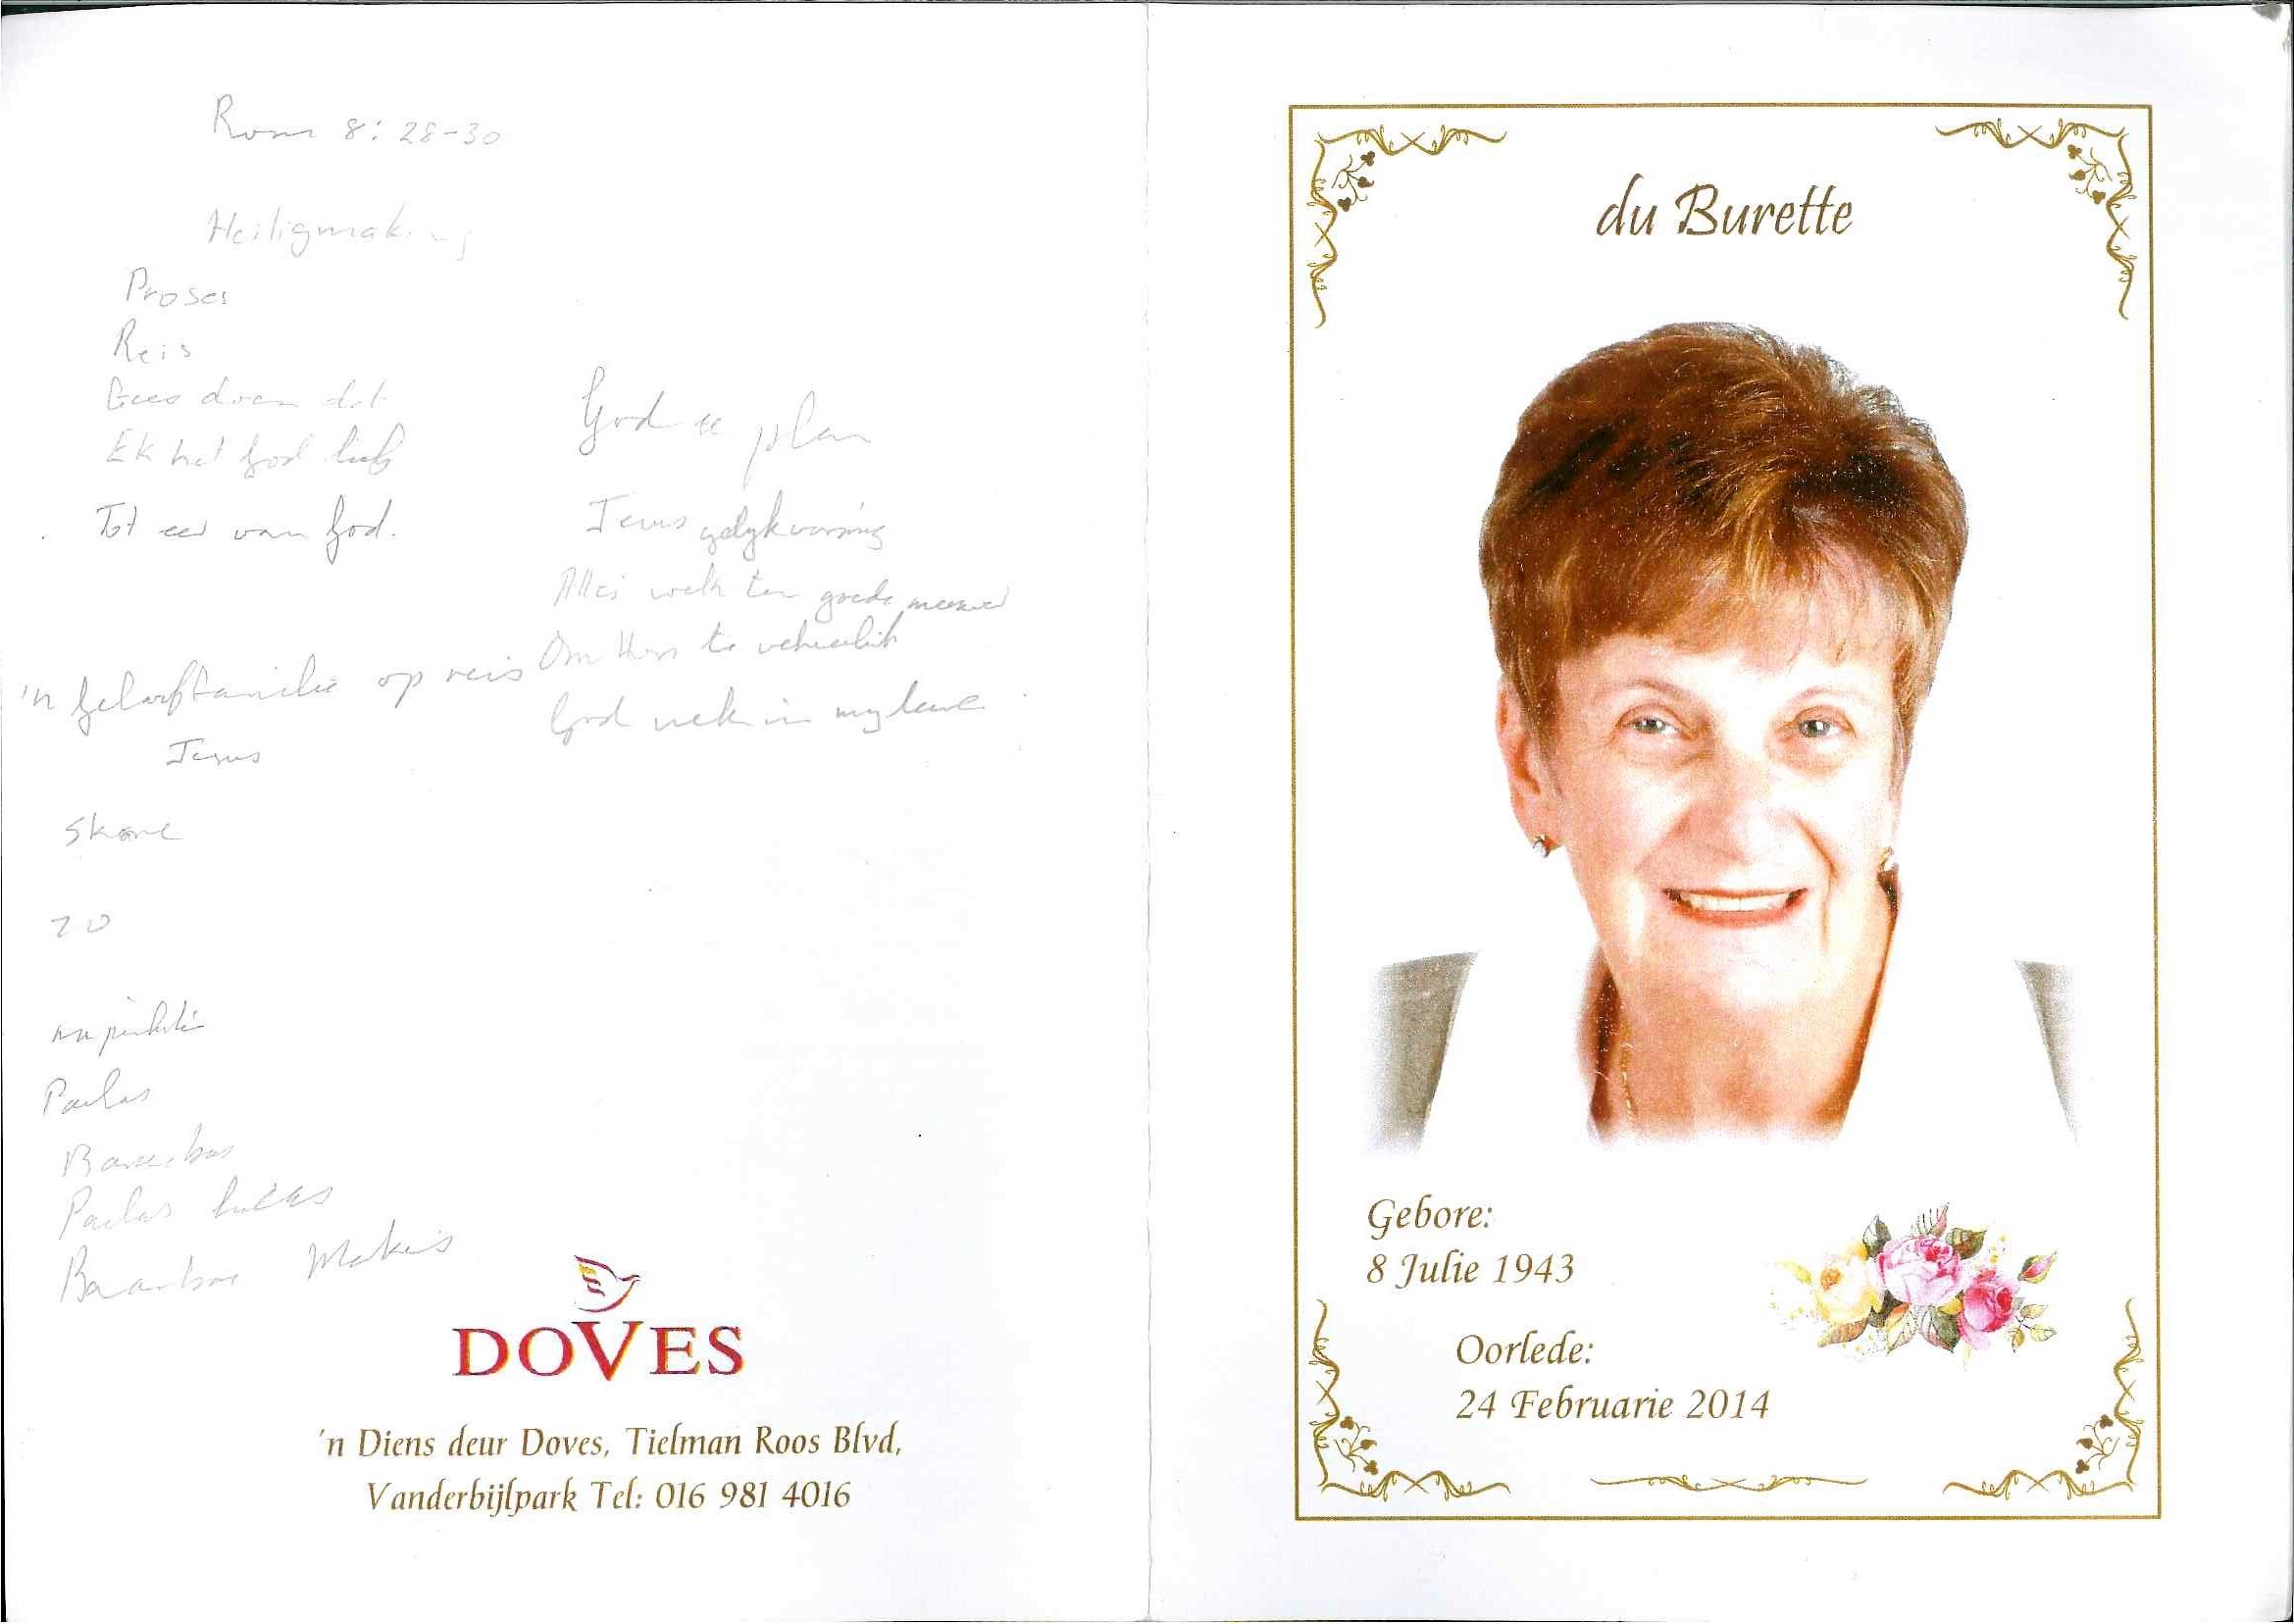 Rom 8:28-30
Heiligmaking
Proses
Reis
Gees dat
Ek het God lief
Tot eer van God.
'n Geloofsfamilie op reis
Jesus
20
Paulus
Barnabas
Paulus Lukas
Barnabas Markus
God se plan
Jesus gelykvormig
Alles werk ten goede
Om Hom te verheerlik
God werk in my lewe
DOVES
'n Diens deur Doves, Tielman Roos Blvd,
Vanderbijlpark Tel: 016 981 4016
du Burette
Gebore:
8 Julie 1943
Oorlede:
24 Februarie 2014